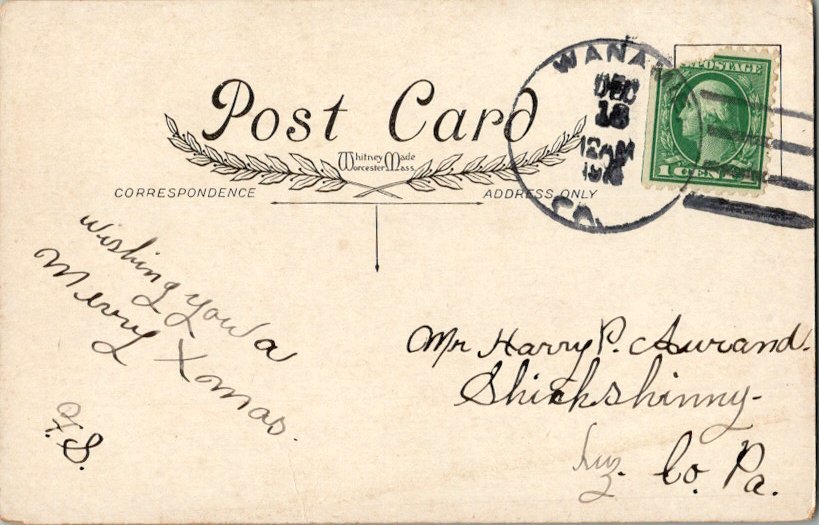 Post Card
Whitney Made
Worcester Mass.
CORRESPONDENCE
ADDRESS ONLY
WANAM
DEC
18
12AM
PA.
POSTAGE
1 CENT
Wishing you a
Merry Xmas.
Mr Harry P. Aurand.
Shickshinny-
Luz. Co. Pa.